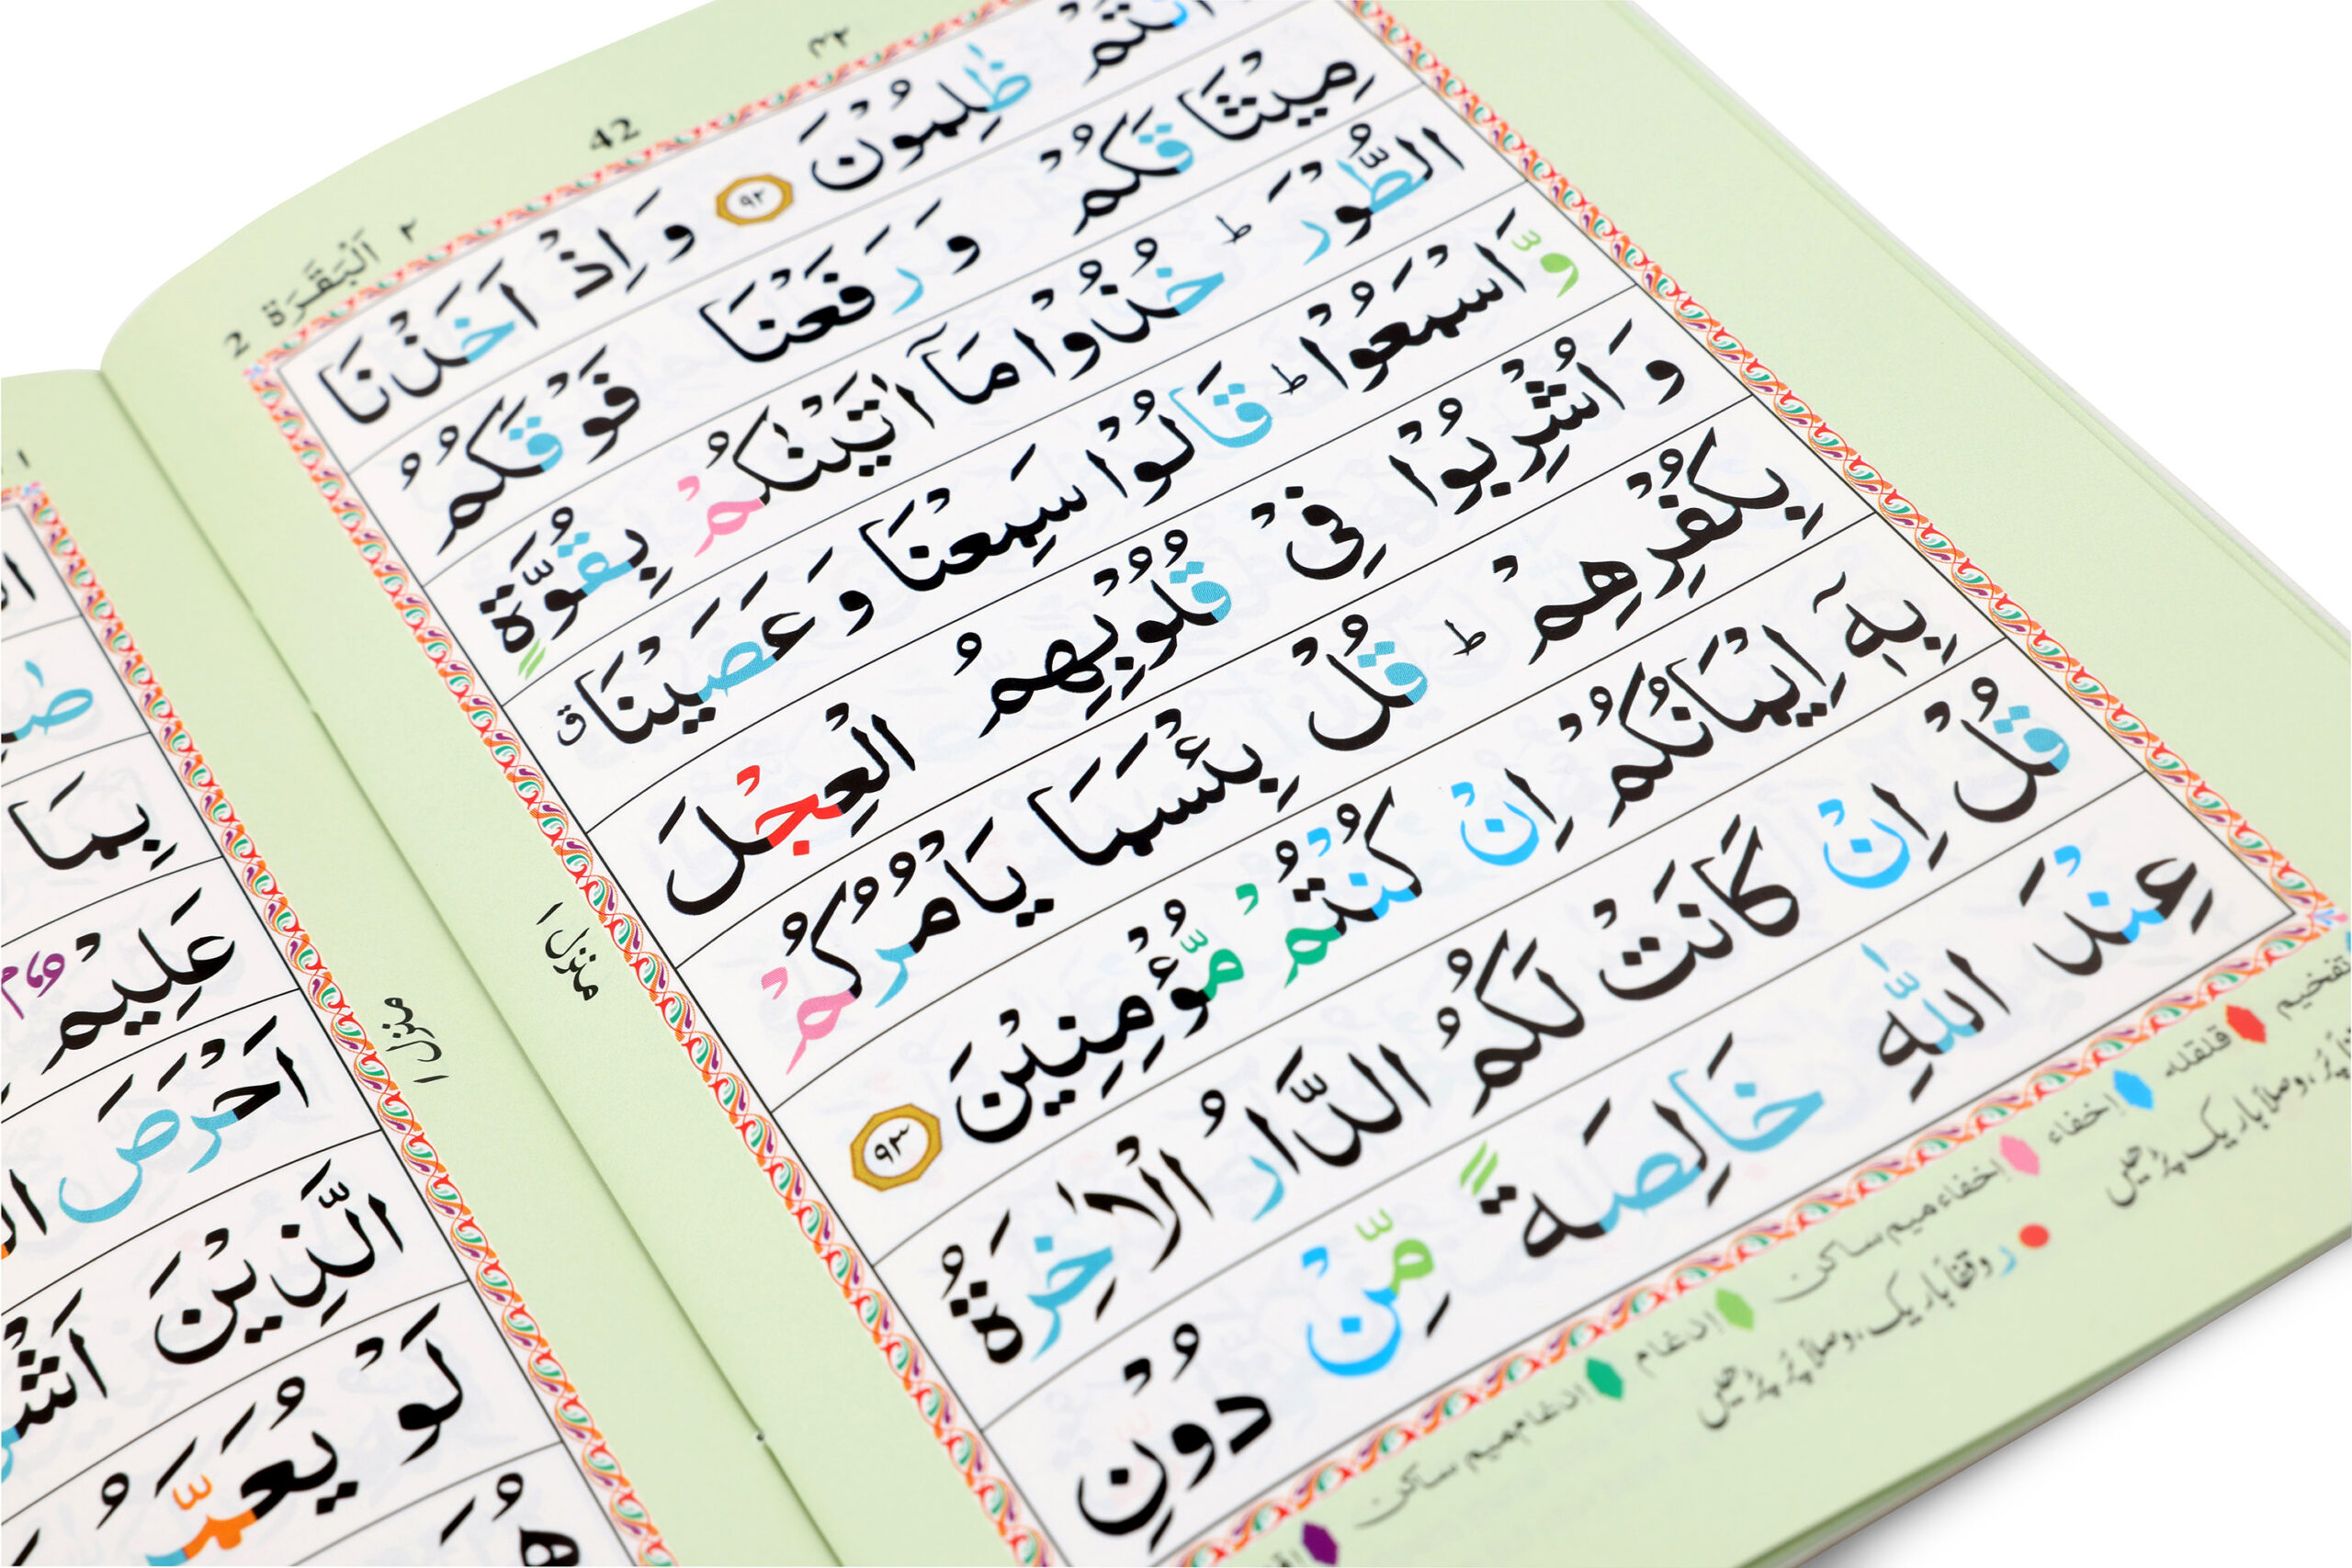 ٢ اَلْبَقَرَة 2
42
اَنْتُمْ ظٰلِمُوْنَ ٩٢ وَ اِذْ اَخَذْنَا
مِيْثَاقَكُمْ وَ رَفَعْنَا فَوْقَكُمُ
الطُّوْرَ ؕ خُذُوْا مَاۤ اٰتَيْنٰكُمْ بِقُوَّةٍ
وَّ اسْمَعُوْا ؕ قَالُوْا سَمِعْنَا وَ عَصَيْنَا ق
وَ اُشْرِبُوْا فِيْ قُلُوْبِهِمُ الْعِجْلَ
بِكُفْرِهِمْ ؕ قُلْ بِئْسَمَا يَاْمُرُكُمْ
بِهٖۤ اِيْمَانُكُمْ اِنْ كُنْتُمْ مُّؤْمِنِيْنَ ٩٣
قُلْ اِنْ كَانَتْ لَكُمُ الدَّارُ الْاٰخِرَةُ
عِنْدَ اللّٰهِ خَالِصَةً مِّنْ دُوْنِ
منزل ١
تفخيم
قلقله
اخفاء
اخفاء ميم ساكن
ادغام
ادغام ميم ساكن
ر وقفاً باریک، وصلاً پُر پڑھیں
وصلاً باریک پڑھیں
بِمَا
عَلِيْمٌ
اَحْرَصَ
الَّذِيْنَ
لَوْ يُعَمَّرُ
منزل ١